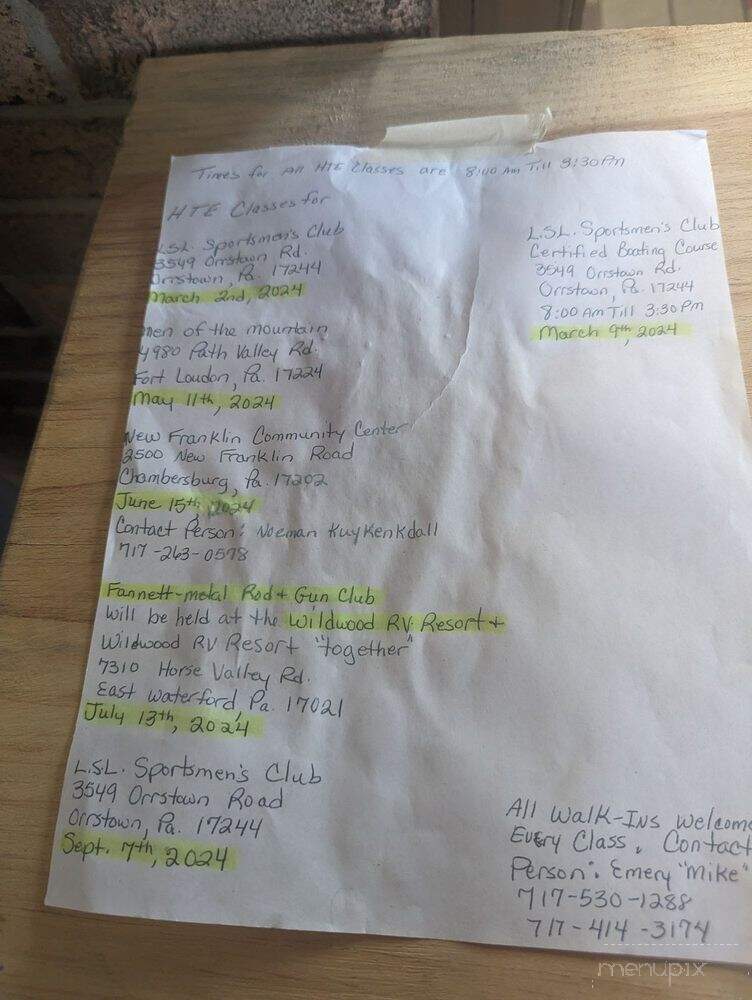 Times for All HTE Classes are 8:00 Am Till 3:30 Pm
HTE Classes for
LSL Sportsmen's Club
3549 Orrstown Rd.
Orrstown, Pa. 17244
March 2nd, 2024
men of the mountain
4980 Path Valley Rd.
Fort Loudon, Pa. 17224
May 11th, 2024
New Franklin Community Center
2500 New Franklin Road
Chambersburg, Pa. 17202
June 15th, 2024
Contact Person: Noeman Kuykenkdall
717-263-0578
Fannett-metal Rod + Gun Club
will be held at the Wildwood RV Resort +
Wildwood RV Resort "together"
7310 Horse Valley Rd.
East Waterford, Pa. 17021
July 13th, 2024
L.S.L. Sportsmen's Club
3549 Orrstown Road
Orrstown, Pa. 17244
Sept. 7th, 2024
L.S.L. Sportsmen's Club
Certified Boating Course
3549 Orrstown Rd.
Orrstown, Pa. 17244
8:00 Am Till 3:30 Pm
March 9th, 2024
All Walk-Ins Welcome
Every Class. Contact
Person: Emery "Mike"
717-530-1288
717-414-3174
menupix